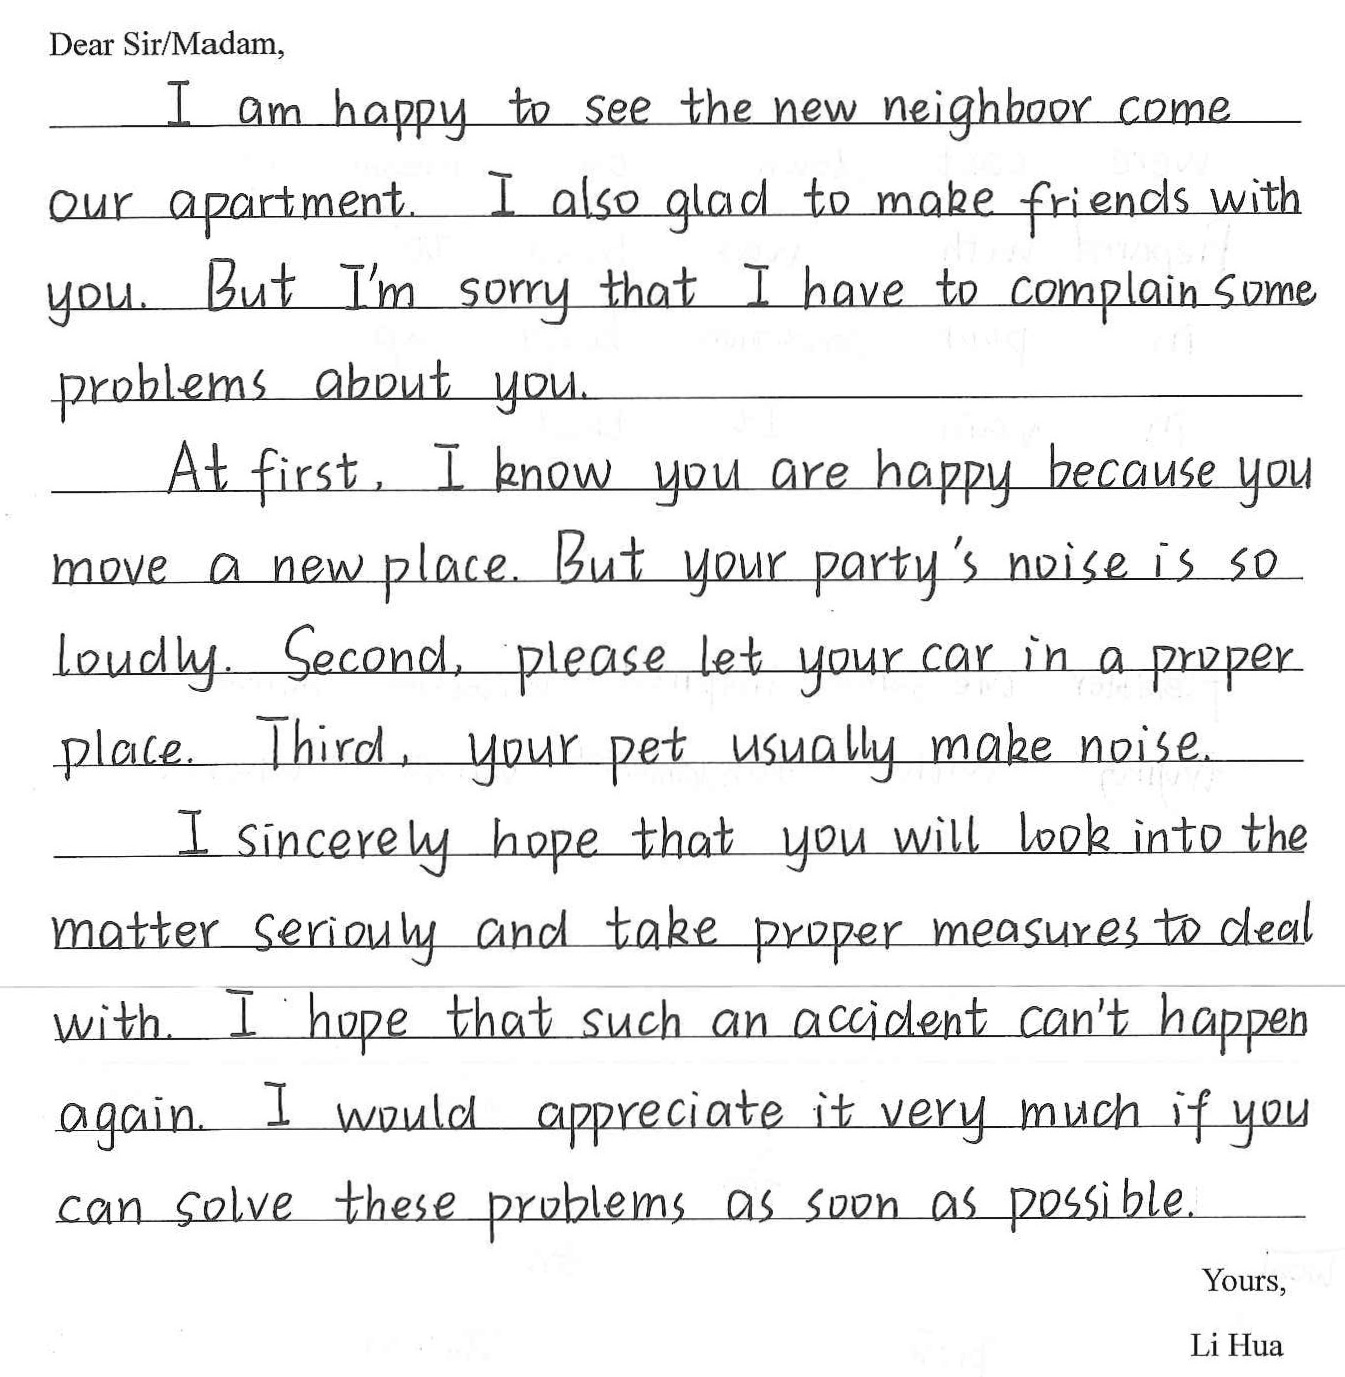 Dear Sir/Madam,
I am happy to see the new neighboor come
our apartment. I also glad to make friends with
you. But I'm sorry that I have to complain some
problems about you.
At first, I know you are happy because you
move a new place. But your party's noise is so
loudly. Second, please let your car in a proper
place. Third, your pet usually make noise.
I sincerely hope that you will look into the
matter seriouly and take proper measures to deal
with. I hope that such an accident can't happen
again. I would appreciate it very much if you
can solve these problems as soon as possible.
Yours,
Li Hua